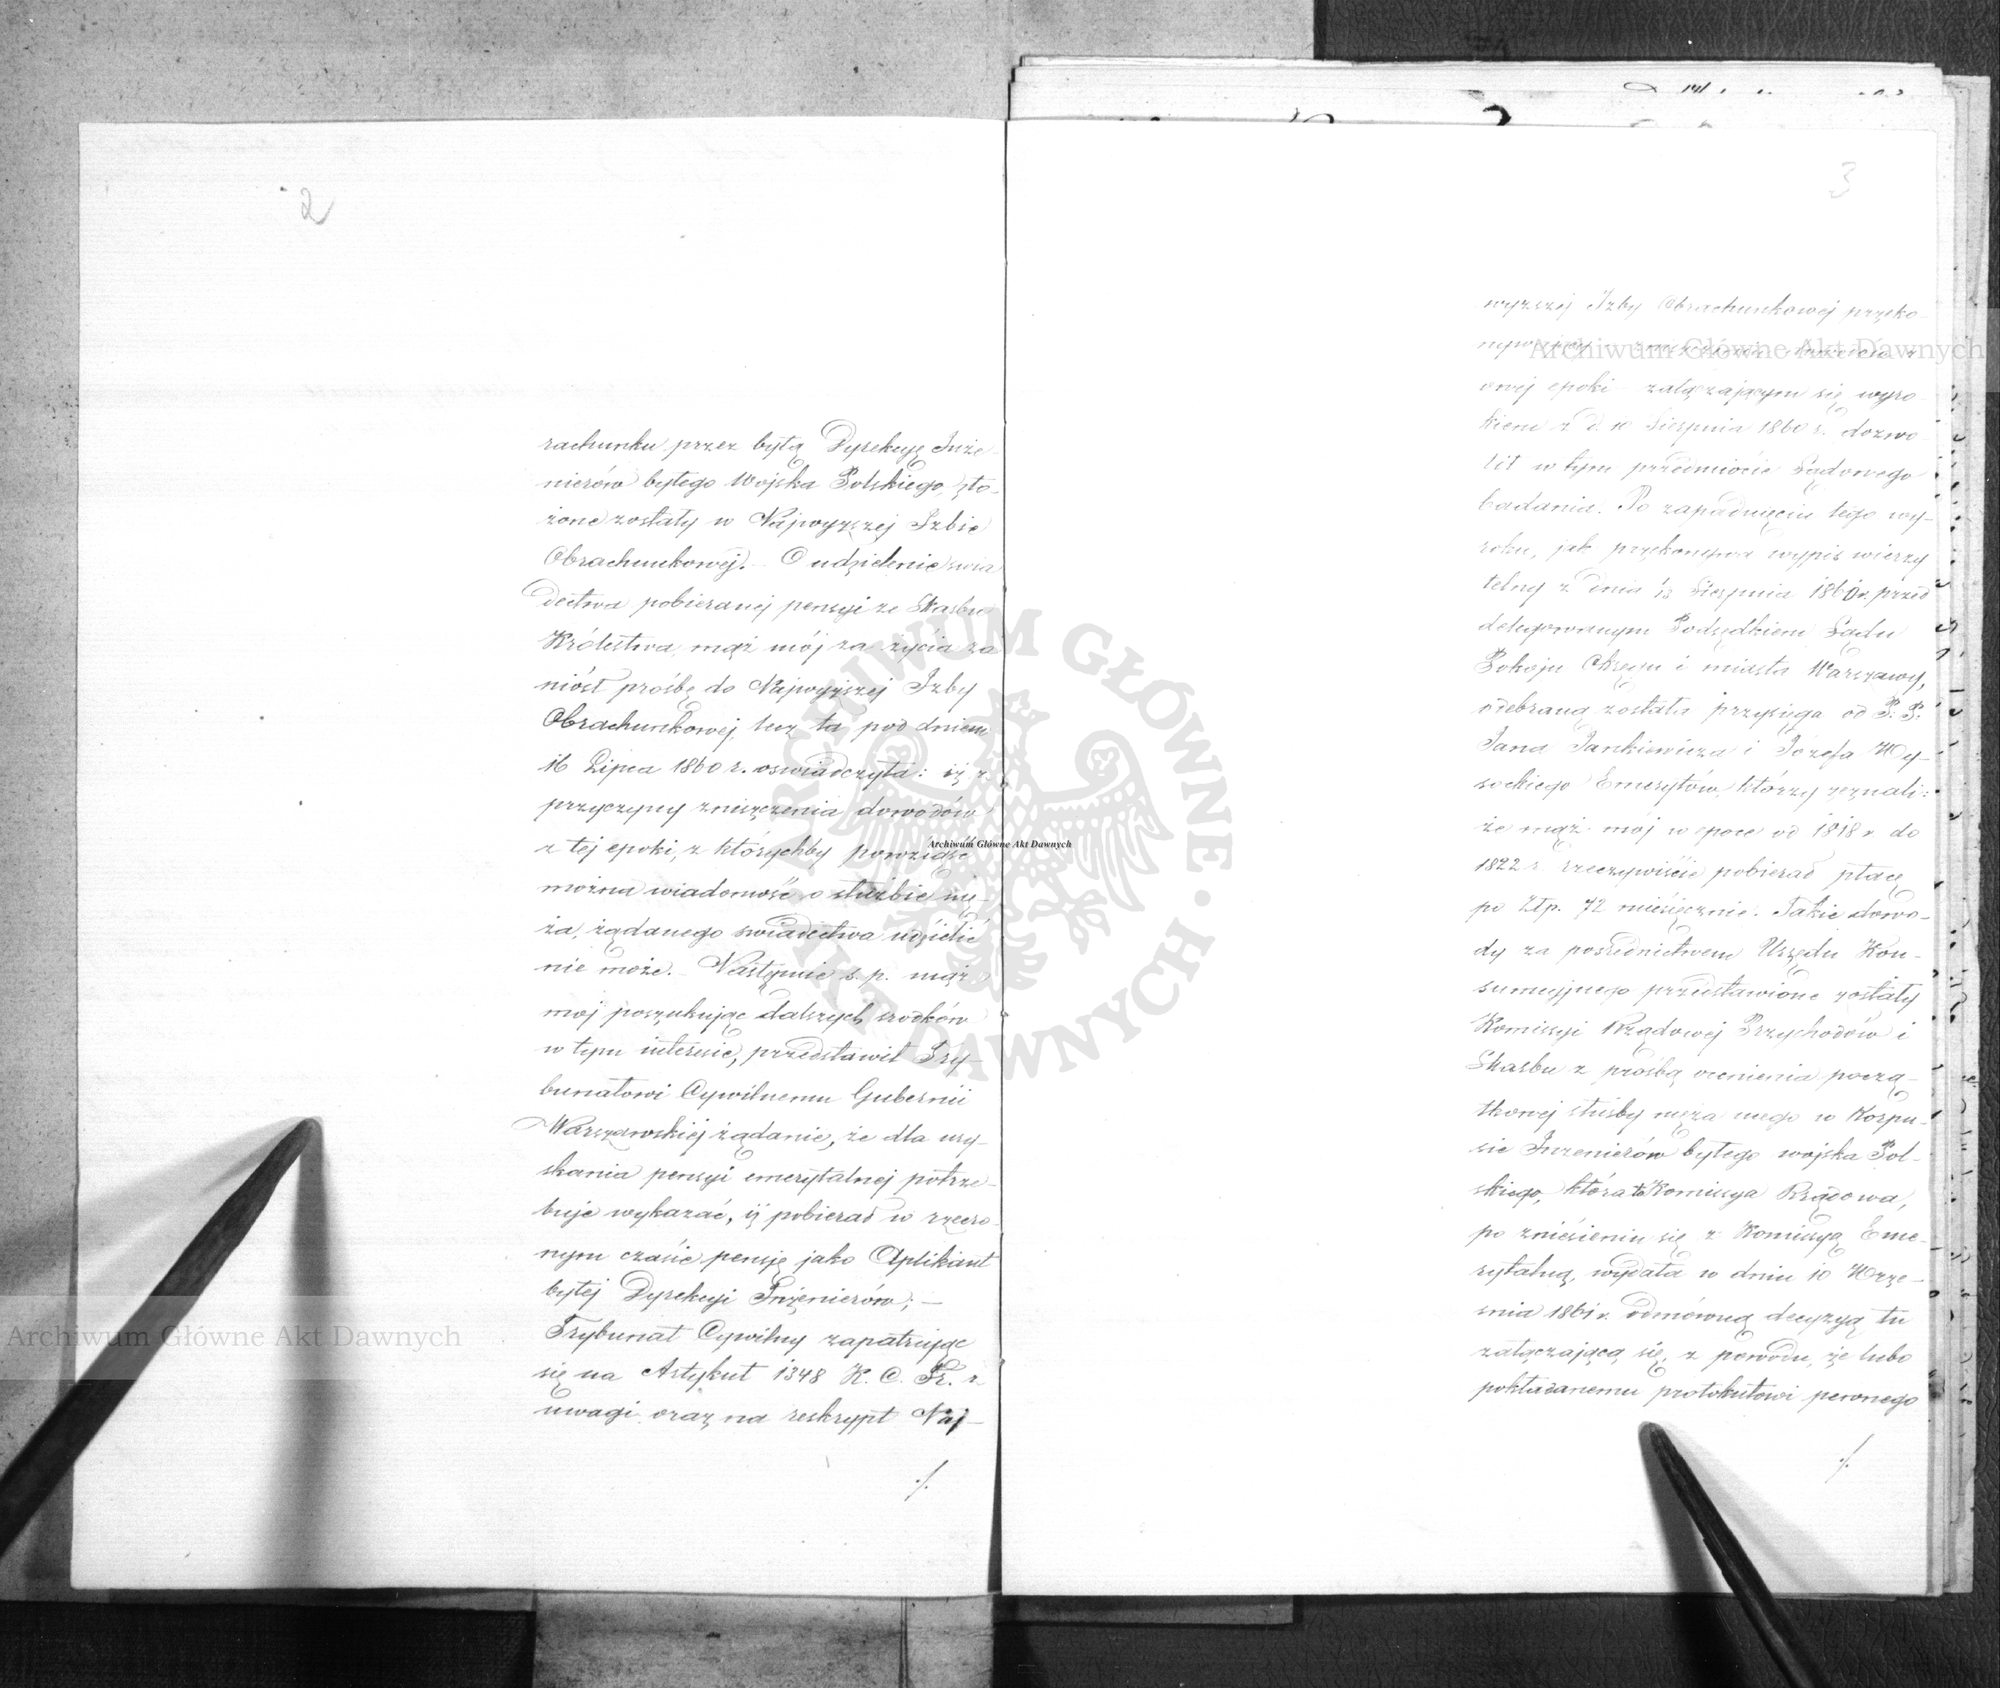 2
rachunku przez byłą Dyrekcyę Inże-
nierów byłego Wojska Polskiego, zło-
żone zostały w Najwyższej Izbie
Obrachunkowej. – O udzielenie świa
dectwa pobieranej pensyi ze Skarbu
Królestwa, mąż mój za życia za
niósł prośbę do Najwyższej Izby
Obrachunkowej, lecz ta pod dniem
16 Lipca 1860 r. oswiadczyła: iż z
przyczyny zniszczenia dowodów
z tej epoki, z którychby powziąść
można wiadomość o służbie mę-
ża, żądanego swiadectwa udzielić
nie może. – Następnie ś. p. mąż
moj poszukując dalszych srodków
w tym interesie, przedstawił Try-
bunałowi Cywilnemu Gubernii
Warszawskiej żądanie, że dla uzy-
skania pensyi emerytalnej potrze-
buje wykazać, iż pobierał w rzeczo-
nym czasie pensję jako Aplikant
byłej Dyrekcyi Inżenierów; –
Trybunał Cywilny zapatrując
się na Artykuł 1348 K. C. Fr. z
uwagi oraz na reskrypt Naj-
./.
3
wyższej Izby Obrachunkowej przeko-
owej epoki załączającym się wyro-
kiem z d. 10 Sierpnia 1860 r. dozwo-
lił w tym przedmiocie Sądowego
badania. Po zapadnięciu tego wy-
roku, jak przekonywa wypis wierzy
telny z dnia 13 Sierpnia 1860 r. przed
delegowanym Podsędkiem Sądu
Pokoju Okręgu i miasta Warszawy,
odebraną została przysięga od P. P.
Jana Jankiewicza i Józefa Wy-
sockiego Emerytów, którzy zeznali:
że mąż mój w epoce od 1818 r. do
1822 r. rzeczywiście pobierał płacę
po Złp. 72 miesięcznie. Takie dowo-
dy za pośrednictwem Urzędu Kon-
sumcyjnego przedstawione zostały
Komissyi Rządowej Przychodów i
Skarbu z prośbą ocenienia począ-
tkowej służby męża mego w Korpu-
sie Inżenierów byłego wojska Pol-
skiego, która to Komissya Rządowa,
po zniesieniu się z Komissyą Eme-
rytalną, wydała w dniu 10 Wrze-
śnia 1861 r. odmówną decyzyą tu
załączającą się, z powodu, że lubo
pokładanemu protokułowi pewnego
./.
Archiwum Główne Akt Dawnych
Archiwum Główne Akt Dawnych
Archiwum Główne Akt Dawnych
ARCHIWUM GŁÓWNE · AKT DAWNYCH ·